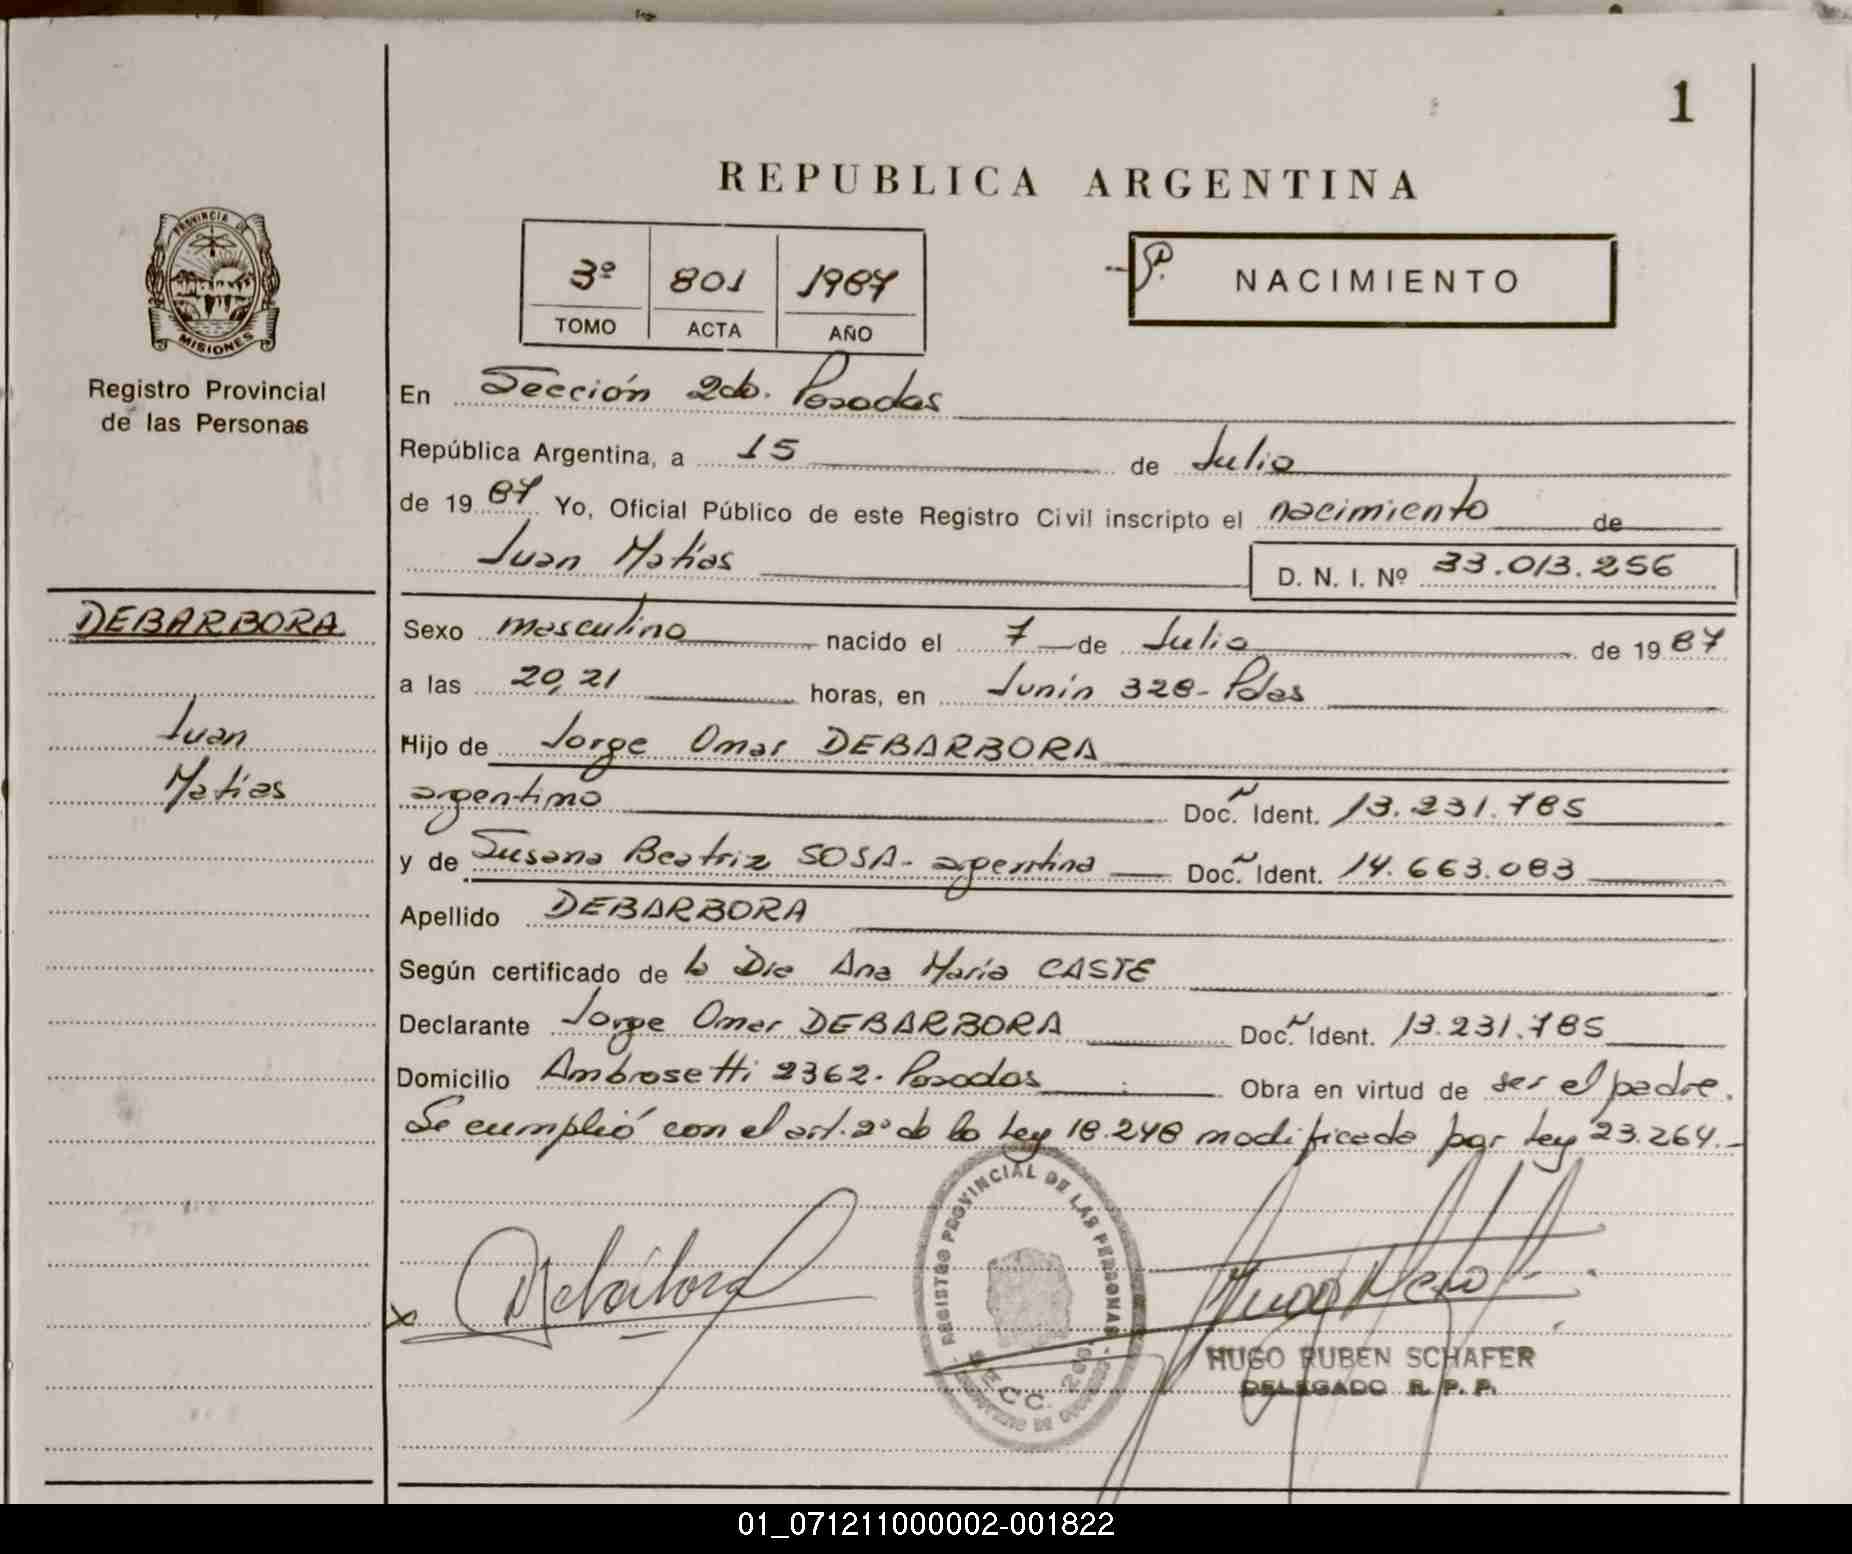 1
REPUBLICA ARGENTINA
PROVINCIA DE
MISIONES
Registro Provincial
de las Personas
3º 801 1987
TOMO ACTA AÑO
NACIMIENTO
En Sección 2da. Posadas
República Argentina, a 15 de Julio
de 1987 Yo, Oficial Público de este Registro Civil inscripto el nacimiento de
Juan Matías
D. N. I. Nº 33.013.256
DEBARBORA
Juan
Matías
Sexo masculino nacido el 7 de Julio de 1987
a las 20,21 horas, en Junín 328- Pdas
Hijo de Jorge Omar DEBARBORA
argentino Doc. Ident. 13.231.785
y de Susana Beatriz SOSA- argentina Doc. Ident. 14.663.083
Apellido DEBARBORA
Según certificado de la Dra Ana María CASTE
Declarante Jorge Omar DEBARBORA Doc. Ident. 13.231.785
Domicilio Ambrosetti 2362- Posadas Obra en virtud de ser el padre.
Se cumplió con el art. 2º de la Ley 18.248 modificada por Ley 23.264.-
REGISTRO PROVINCIAL DE LAS PERSONAS
SECC. 2da
HUGO RUBEN SCHAFER
DELEGADO R. P. P.
01_071211000002-001822